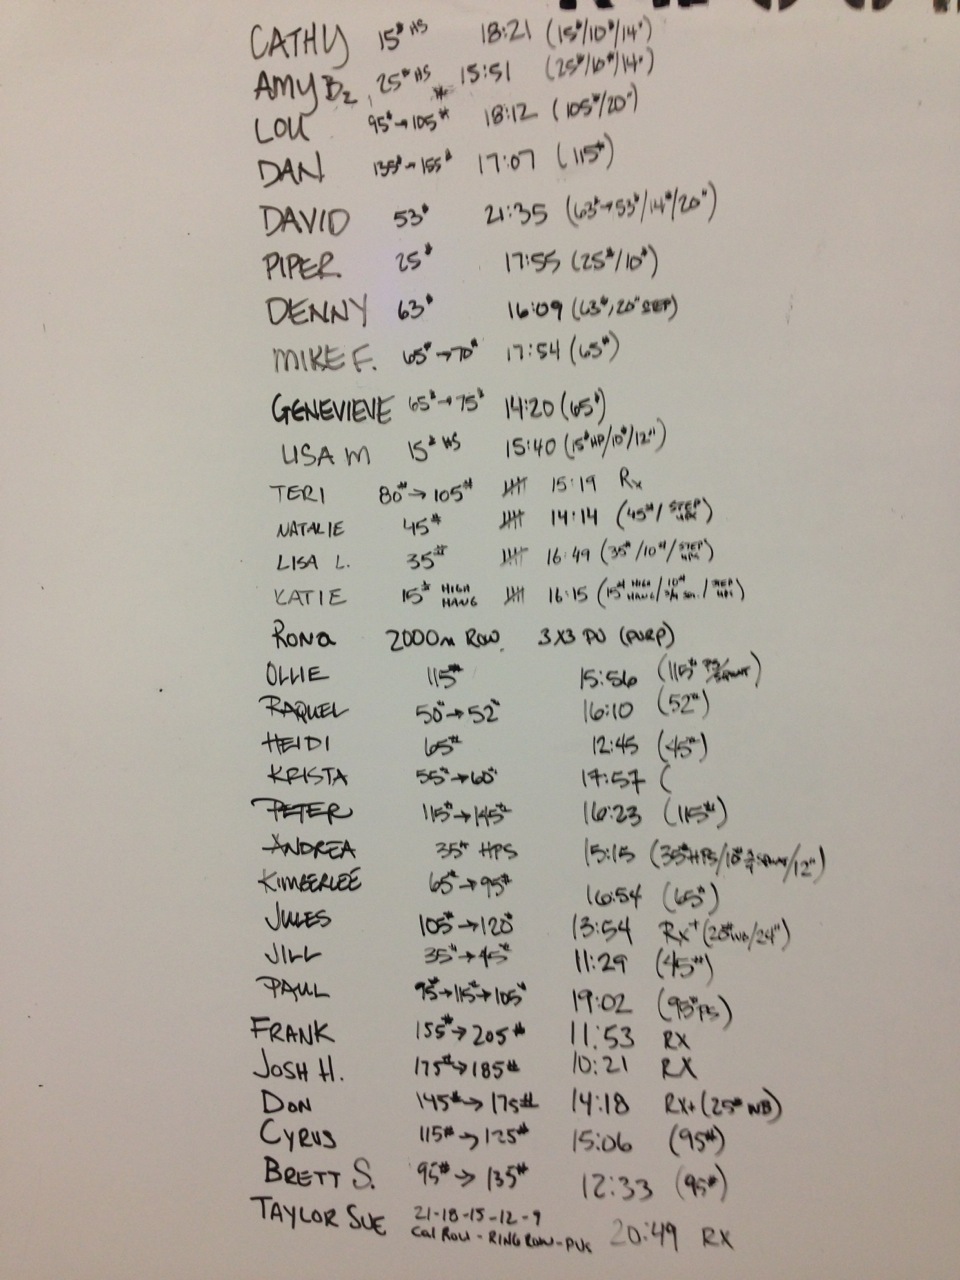 CATHY 15# HS 18:21 (15#/10#/14")
AMY B2 25# HS 15:51 (25#/10#/14")
LOU 95#→105# 18:12 (105#/20")
DAN 135#→155# 17:07 (115#)
DAVID 53# 21:35 (63#→53#/14#/20")
PIPER 25# 17:55 (25#/10#)
DENNY 63# 16:09 (63#, 20" STEP)
MIKE F. 65#→70# 17:54 (65#)
GENEVIEVE 65#→75# 14:20 (65#)
LISA M 15# HS 15:40 (15# HP/10#/12")
TERI 80#→105# 15:19 Rx
NATALIE 45# 14:14 (45#/STEP UPS)
LISA L. 35# 16:49 (35#/10#/STEP UPS)
KATIE 15# HIGH HANG 16:15 (15# HIGH HANG/10# /STEP UPS)
RONA 2000m ROW, 3X3 PU (PURP)
OLLIE 115# 15:56 (115# PS/SQUAT)
RAQUEL 50#→52# 16:10 (52#)
HEIDI 65# 12:45 (45#)
KRISTA 55#→60# 17:57 (
PETER 115#→145# 16:23 (115#)
ANDREA 35# HPS 15:15 (35# HPS/10# 3/4 SQUAT/12")
KIMBERLEE 65#→95# 16:54 (65#)
JULES 105#→120# 13:54 Rx+ (20# WB/24")
JILL 35#→45# 11:29 (45#)
PAUL 95#→115#→105# 19:02 (95# PS)
FRANK 155#→205# 11:53 RX
JOSH H. 175#→185# 10:21 RX
DON 145#→175# 14:18 RX+ (25# WB)
CYRUS 115#→125# 15:06 (95#)
BRETT S. 95#→135# 12:33 (95#)
TAYLOR SUE 21-18-15-12-9 20:49 RX
Cal Row - RING ROW - PUs